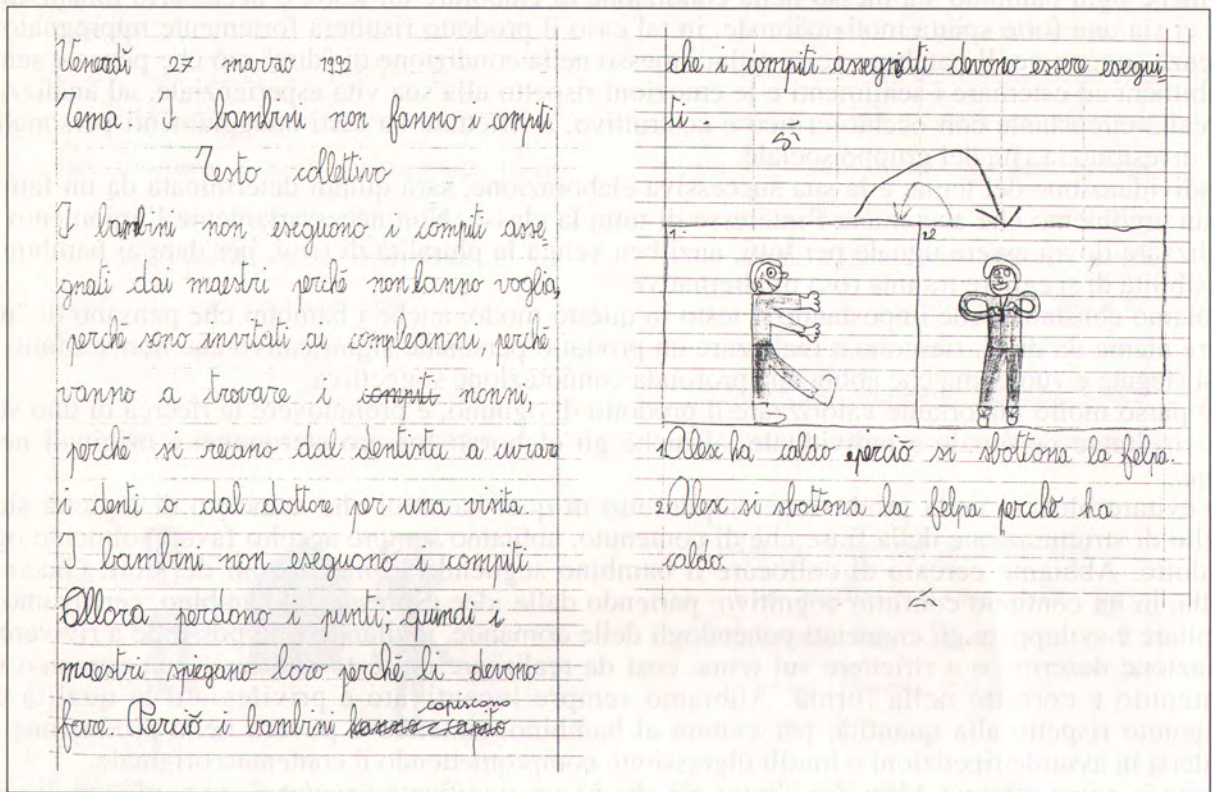 Venerdì 27 marzo 1992
Tema: I bambini non fanno i compiti
Testo collettivo
I bambini non eseguono i compiti asse
gnati dai maestri perché non hanno voglia,
perché sono invitati ai compleanni, perché
vanno a trovare i compiti nonni,
perché si recano dal dentista a curare
i denti o dal dottore per una visita.
I bambini non eseguono i compiti
Allora perdono i punti; quindi i
maestri spiegano loro perché li devono
fare. Perciò i bambini hanno capito
capiscono
che i compiti assegnati devono essere esegui
ti.
1
2
1 Alex ha caldo e perciò si sbottona la felpa.
2 Alex si sbottona la felpa perché ha
caldo.